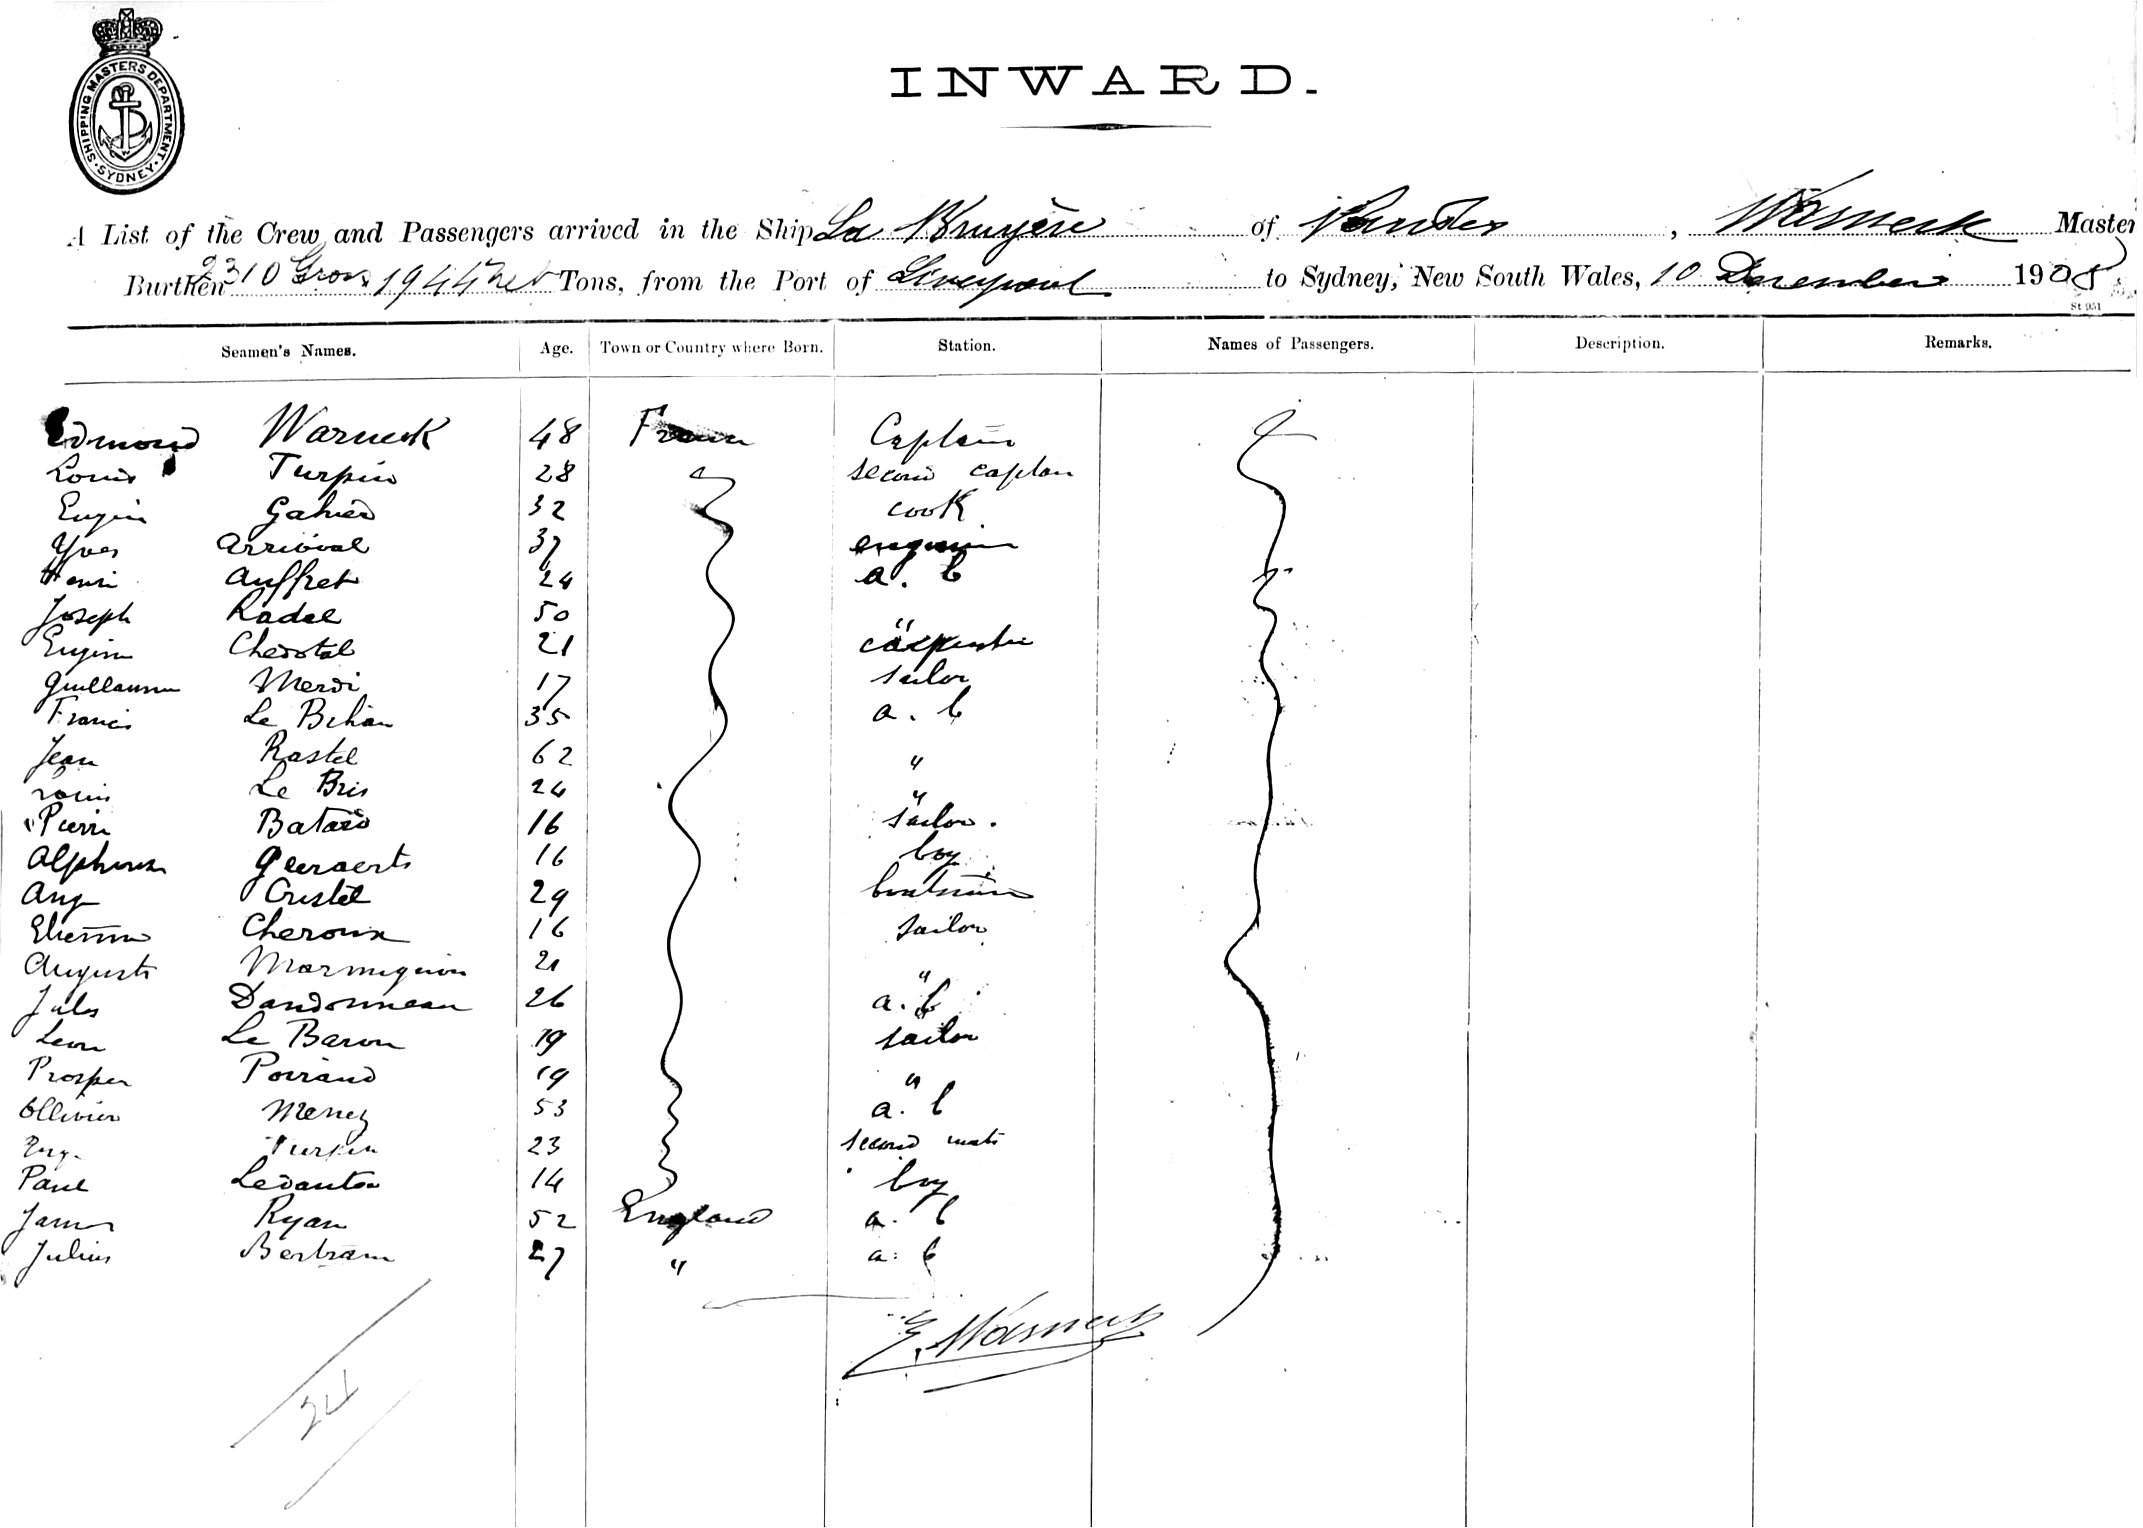 SHIPPING MASTERS DEPARTMENT · SYDNEY ·
INWARD.
A List of the Crew and Passengers arrived in the Ship La Bruyère of Nantes, Warneck Master
Burthen 2310 Gross 1944 net Tons, from the Port of Liverpool to Sydney, New South Wales, 10 December 1908
St 951
Seamen's Names. Age. Town or Country where Born. Station. Names of Passengers. Description. Remarks.
Edmond Warneck 48 France Captain
Louis Turpin 28 second captain
Eugin Gahied 32 cook
Yves Arrivial 37
Henri Auffret 24 a. b
Joseph Radel 50 "
Eugin Cherotal 21 carpenter
Guillaume Merdi 17 sailor
Francis Le Bihan 35 a. b
Jean Rastel 62 "
Louis Le Bris 24 "
Pierre Batard 16 sailor.
Alphonse Geeraerts 16 boy
Ange Cristel 29 boatsman
Etienne Cheroux 16 sailor
Auguste Marmignon 21 "
Jules Dandonneau 26 a. b
Leon Le Baron 19 sailor
Prosper Poiraud 19 "
Ollivier Menez 53 a. b
Turpin 23 second mate
Paul Ledanton 14 boy
James Ryan 52 England a. b
Julius Bertram 27 " a. b
E. Warneck
24